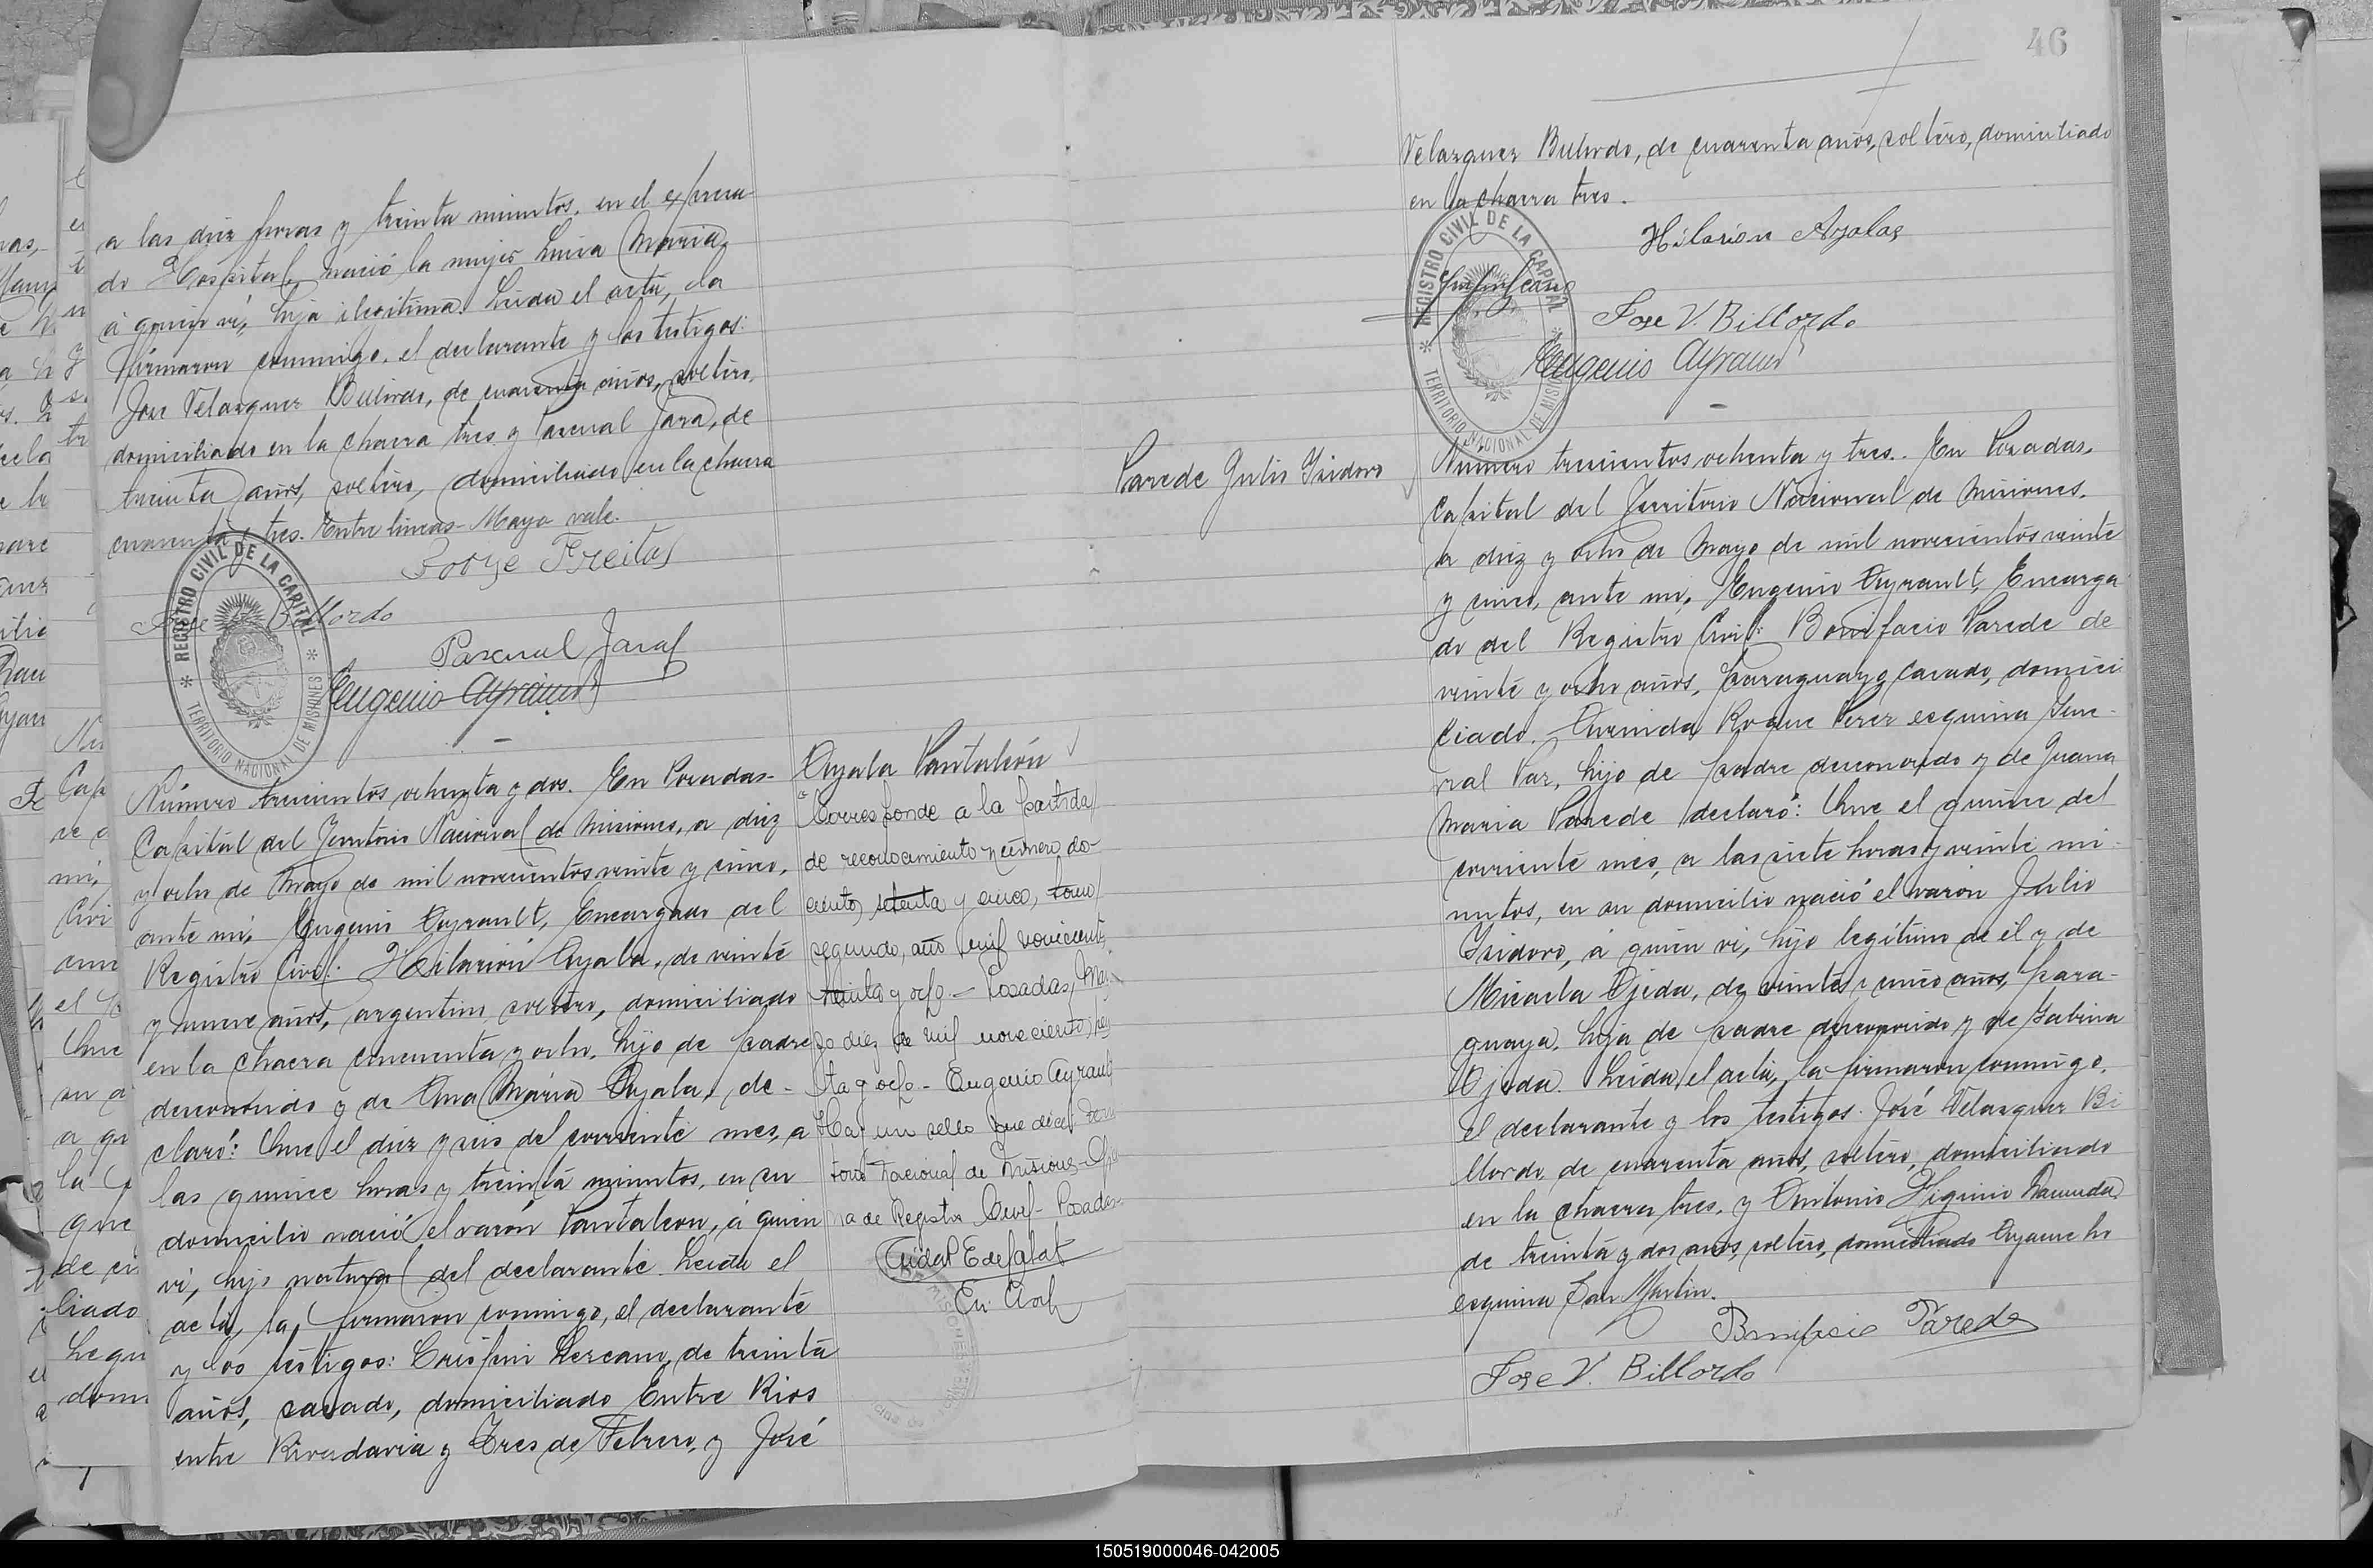 a las diez horas y treinta minutos, en el expresa-
do Hospital, nació la mujer Luisa María,
á quien ví, hija ilegítima. Leída el acta, la
firmaron conmigo, el declarante y los testigos:
José Velazquez Billordo, de cuarenta años, soltero,
domiciliado en la chacra tres y Pascual Jara, de
treinta años, soltero, domiciliado en la chacra
cuarenta y tres. Entre lineas - Mayo vale.
Jorge Freitas
Jose V. Billordo
Pascual Jara
Eugenio Ayrault
REGISTRO CIVIL DE LA CAPITAL
TERRITORIO NACIONAL DE MISIONES
Número trescientos ochenta y dos. En Posadas-
Capital del Territorio Nacional de Misiones, a diez
y ocho de Mayo de mil novecientos veinte y cinco,
ante mí, Eugenio Ayrault, Encargado del
Registro Civil: Hilarión Ayala, de veinte
y nueve años, argentino soltero, domiciliado
en la chacra cincuenta y ocho, hijo de padre
desconocido y de Ana María Ayala, de-
claró: Que el diez y seis del corriente mes, a
las quince horas y treinta minutos, en su
domicilio nació el varón Pantaleon, á quien
ví, hijo natural del declarante. Leída el
acta, la firmaron conmigo, el declarante
y los testigos: Crispin Lezcano, de treinta
años, casado, domiciliado Entre Rios
entre Rivadavia y Tres de Febrero, y José
Ayala Pantaleón
Corresponde a la partida
de reconocimiento número do-
ciento setenta y cinco, tomo
segundo, año mil novecientos
treinta y ocho - Posadas, Mar-
zo diez de mil novecientos trein
ta y ocho - Eugenio Ayrault
Hay un sello que dice: Terri
torio Nacional de Misiones - Ofici
na de Registro Civil - Posadas
46
Velazquez Billordo, de cuarenta años, soltero, domiciliado
en la chacra tres.
Hilarión Ayala
Jose V. Billordo
Eugenio Ayrault
REGISTRO CIVIL DE LA CAPITAL
TERRITORIO NACIONAL DE MISIONES
Parede Julio Isidoro
Número trescientos ochenta y tres. En Posadas,
Capital del Territorio Nacional de Misiones,
a diez y ocho de Mayo de mil novecientos veinte
y cinco, ante mí, Eugenio Ayrault, Encarga
do del Registro Civil: Bonifacio Parede de
veinte y ocho años, paraguayo casado, domici
liado Avenida Roque Perez esquina Gene-
ral Paz, hijo de padre desconocido y de Juana
Maria Parede declaró: Que el quince del
corriente mes, a las siete horas y veinte mi-
nutos, en su domicilio nació el varón Julio
Isidoro, á quien ví, hijo legítimo de él y de
Micaela Ojeda, de veinte y cinco años, para-
guaya, hija de padre desconocido y de Gabina
Ojeda. Leída el acta, la firmaron conmigo,
el declarante y los testigos: José Velazquez Bi
llordo, de cuarenta años, soltero, domiciliado
en la chacra tres, y Antonio Higinio
de treinta y dos años, soltero, domiciliado Ayacucho
esquina San Martin.
Bonifacio Parede
Jose V. Billordo
150519000046-042005